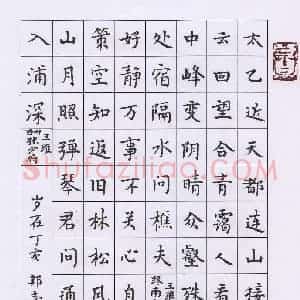 太乙近天都连山接
云回望合青霭入看
中峰变阴晴众壑殊
处宿隔水问樵夫 王维 终南
好静万事不关心自
策空知返旧林松风
山月照弹琴君问通
入浦深 王维 酬张少府 岁在丁亥 郭
shufaziliao.com